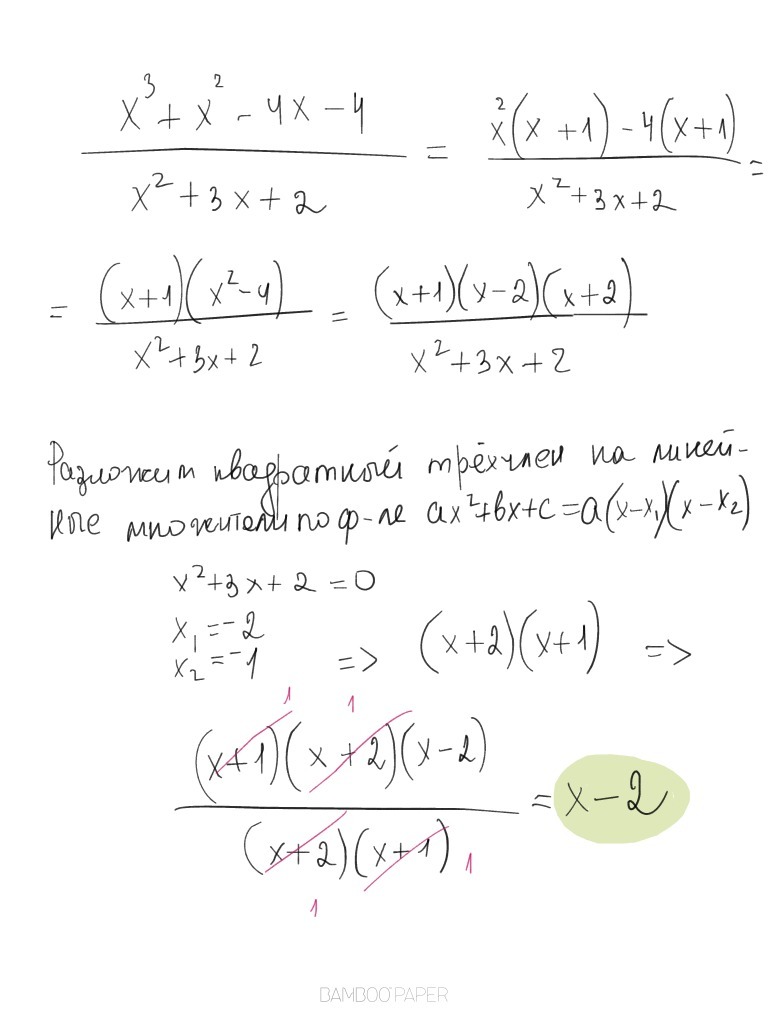 x³ + x² - 4x - 4 / x² + 3x + 2 = x²(x + 1) - 4(x + 1) / x² + 3x + 2 =
= (x+1)(x² - 4) / x² + 3x + 2 = (x+1)(x-2)(x+2) / x² + 3x + 2
Разложим квадратный трёхчлен на линей-
ные множители по ф-ле ax²+bx+c=a(x-x₁)(x-x₂)
x² + 3x + 2 = 0
x₁ = -2
x₂ = -1 => (x+2)(x+1) =>
1 1
(x+1)(x+2)(x-2) / (x+2)(x+1) = x-2
1 1
BAMBOO PAPER